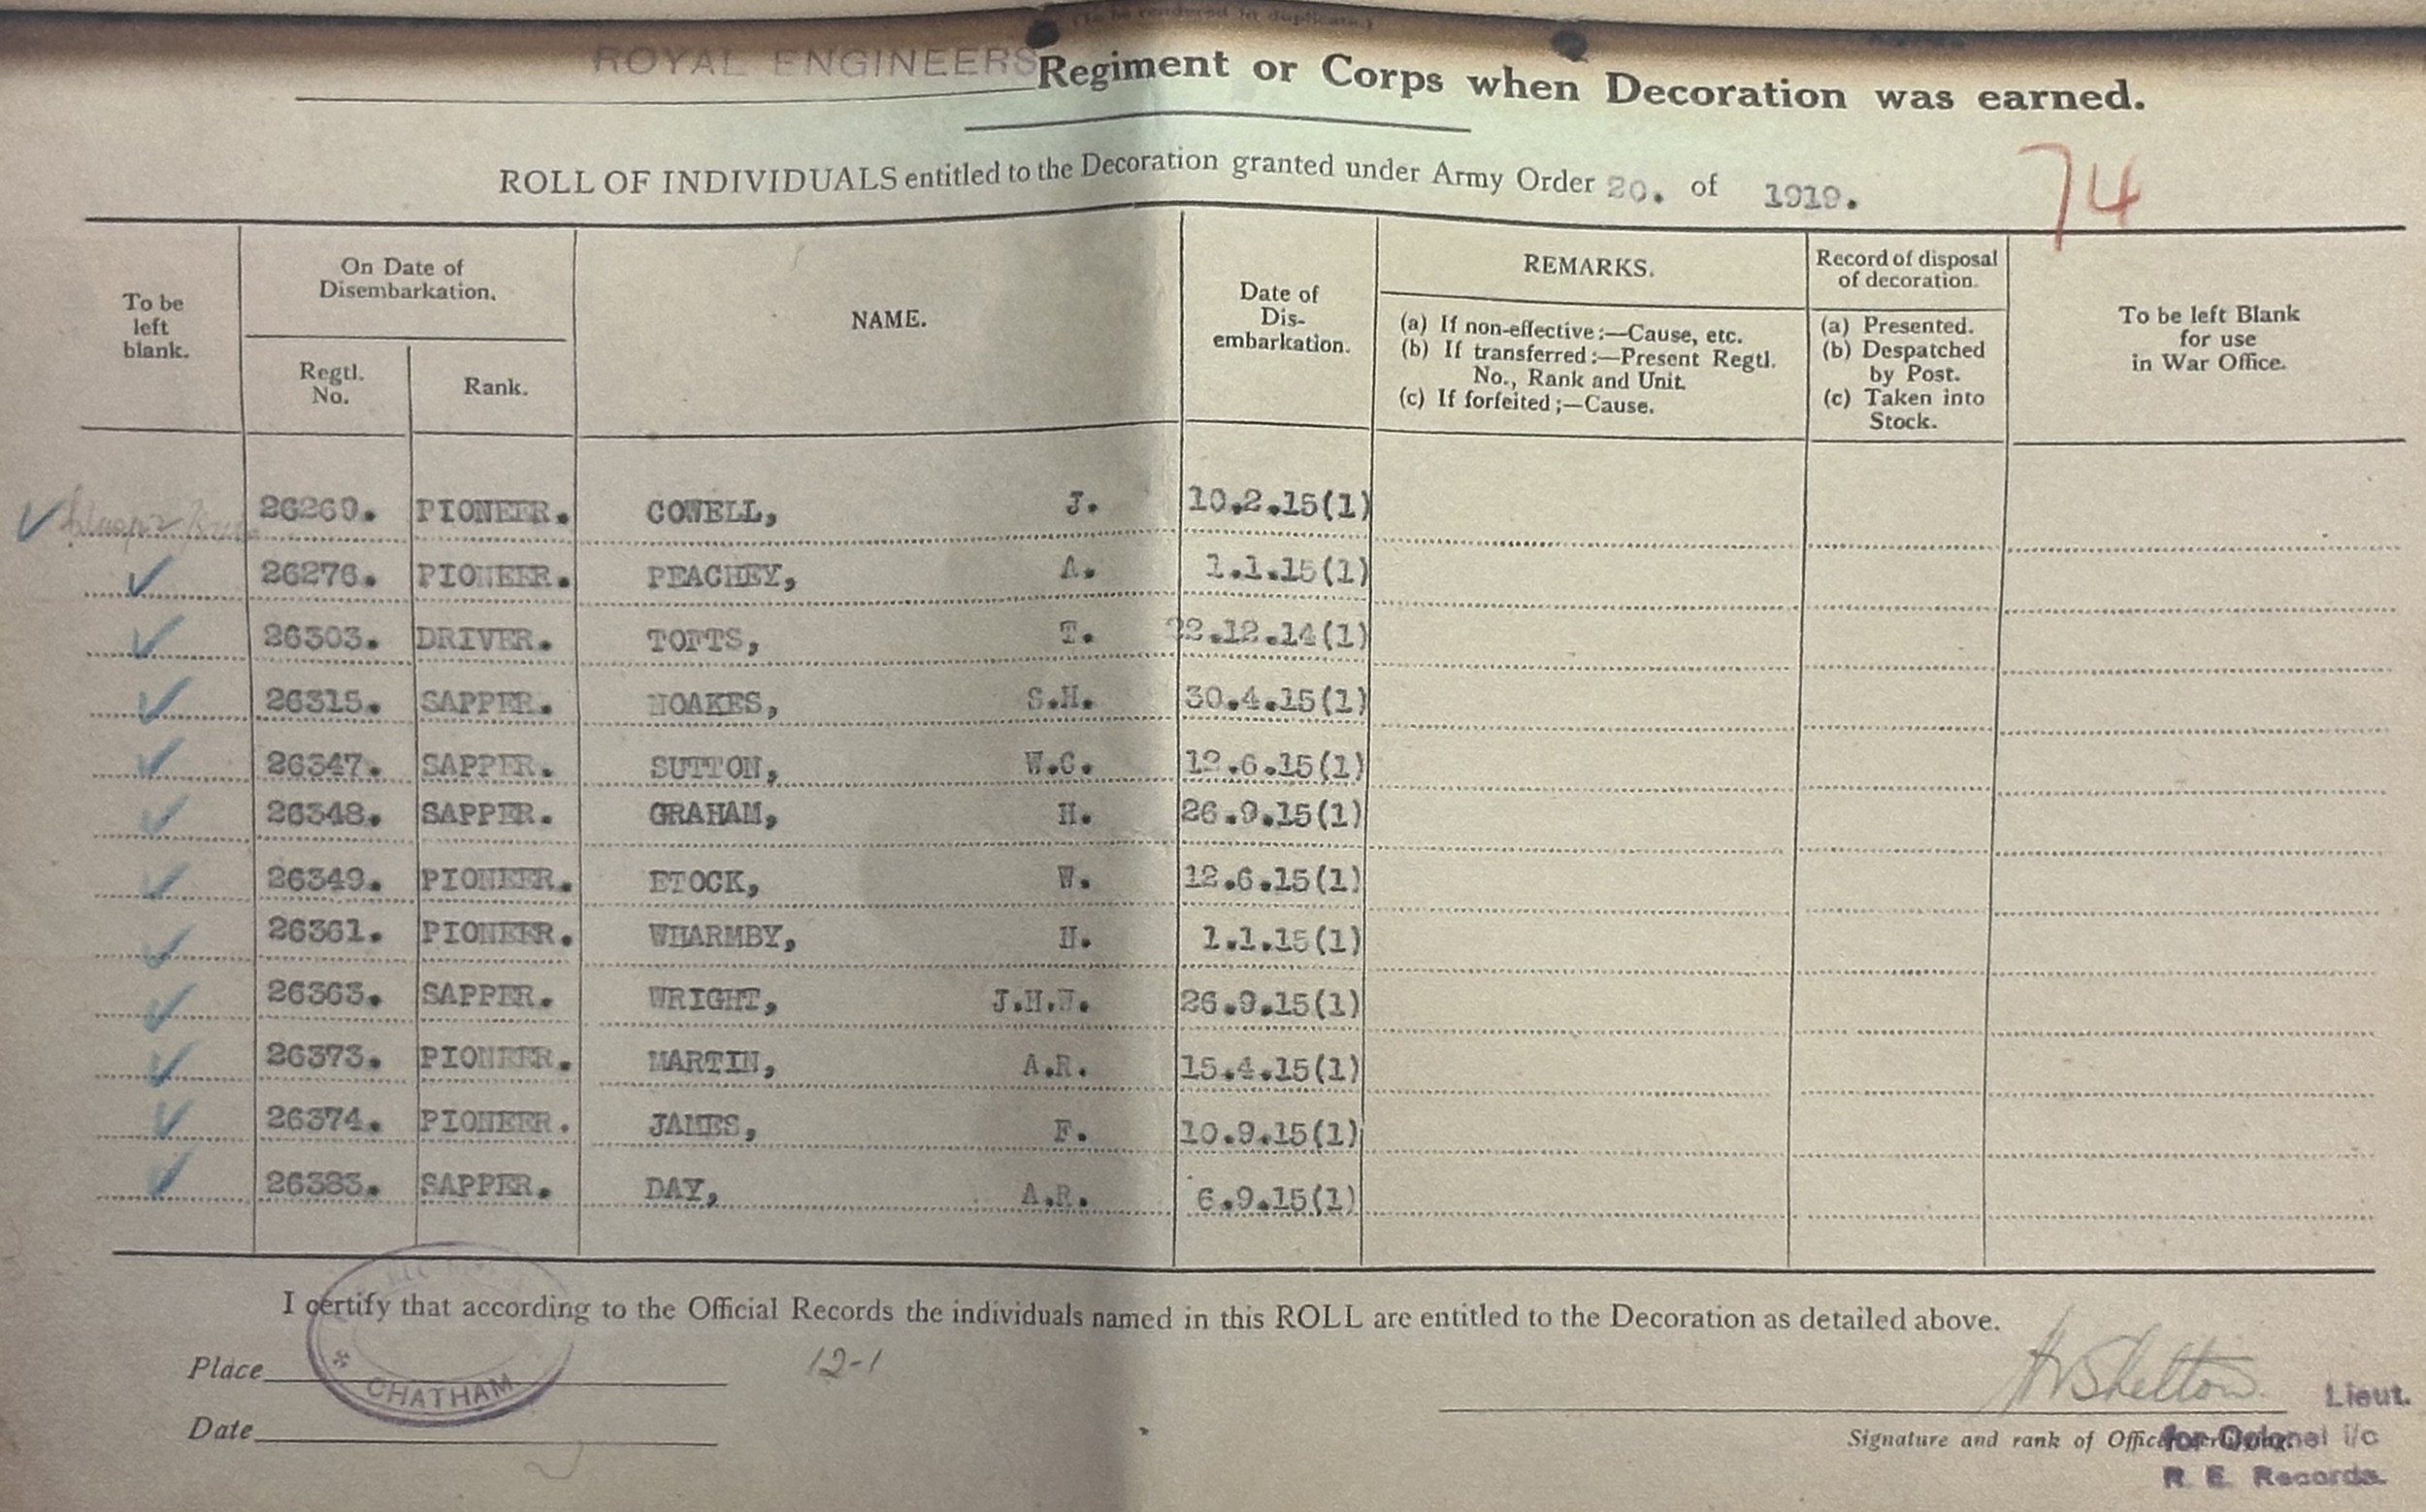 (To be rendered in duplicate.)
ROYAL ENGINEERS Regiment or Corps when Decoration was earned.
ROLL OF INDIVIDUALS entitled to the Decoration granted under Army Order 20. of 1919.
74
To be left blank.
On Date of Disembarkation.
Regtl. No.
Rank.
NAME.
Date of Dis-embarkation.
REMARKS.
(a) If non-effective:—Cause, etc.
(b) If transferred:—Present Regtl. No., Rank and Unit.
(c) If forfeited;—Cause.
Record of disposal of decoration.
(a) Presented.
(b) Despatched by Post.
(c) Taken into Stock.
To be left Blank for use in War Office.
26269. PIONEER. COWELL, J. 10.2.15(1)
26276. PIONEER. PEACHEY, A. 1.1.15(1)
26303. DRIVER. TOFTS, T. 22.12.14(1)
26315. SAPPER. NOAKES, S.H. 30.4.15(1)
26347. SAPPER. SUTTON, W.C. 12.6.15(1)
26348. SAPPER. GRAHAM, H. 26.9.15(1)
26349. PIONEER. ETOCK, W. 12.6.15(1)
26361. PIONEER. WHARMBY, H. 1.1.15(1)
26363. SAPPER. WRIGHT, J.H.W. 26.9.15(1)
26373. PIONEER. MARTIN, A.R. 15.4.15(1)
26374. PIONEER. JAMES, F. 10.9.15(1)
26383. SAPPER. DAY, A.R. 6.9.15(1)
I certify that according to the Official Records the individuals named in this ROLL are entitled to the Decoration as detailed above.
Place
CHATHAM
12-1
Date
Shelton
Lieut.
Signature and rank of Officer certifying.
for Colonel i/c
R. E. Records.